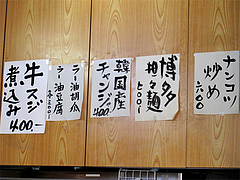 ナンコツ
炒め
六〇〇
博多
担々麺
韓国産
チャンジャ
400.-
ラー油胡瓜
ラー油豆腐
牛スジ
煮込み
400.-